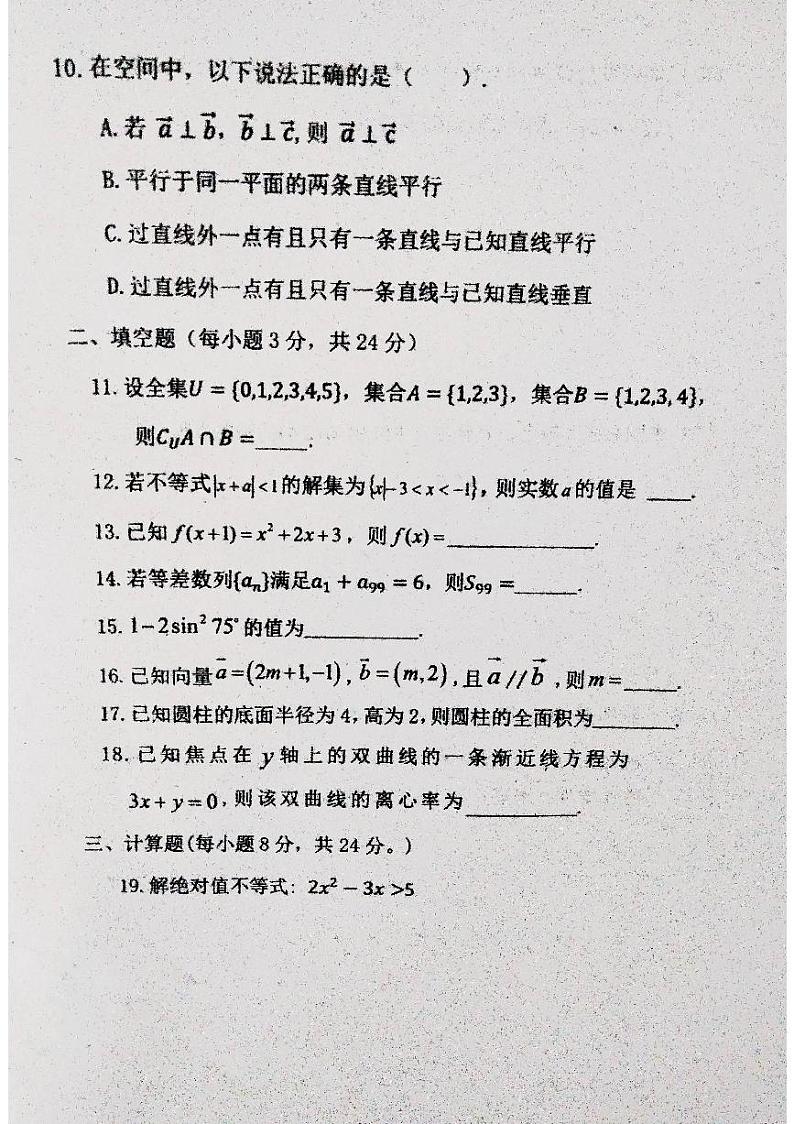 10. 在空间中，以下说法正确的是（　　）.
A. 若 a⃗⊥b⃗，b⃗⊥c⃗, 则 a⃗⊥c⃗
B. 平行于同一平面的两条直线平行
C. 过直线外一点有且只有一条直线与已知直线平行
D. 过直线外一点有且只有一条直线与已知直线垂直
二、填空题（每小题3分，共24分）
11. 设全集U = {0,1,2,3,4,5}，集合A = {1,2,3}，集合B = {1,2,3,4}，
则C_U A ∩ B =____.
12. 若不等式|x+a|<1的解集为{x|-3<x<-1}，则实数a的值是 ____.
13. 已知 f(x+1)=x²+2x+3，则 f(x)=____________.
14. 若等差数列{aₙ}满足a₁ + a₉₉ = 6，则S₉₉ =_____.
15. 1-2sin²75°的值为__________.
16. 已知向量a⃗=(2m+1,-1)，b⃗=(m,2)，且a⃗//b⃗，则m=____.
17. 已知圆柱的底面半径为4，高为2，则圆柱的全面积为_______.
18. 已知焦点在 y 轴上的双曲线的一条渐近线方程为
3x+y=0，则该双曲线的离心率为__________.
三、计算题(每小题8分，共24分。)
19. 解绝对值不等式：2x² − 3x >5